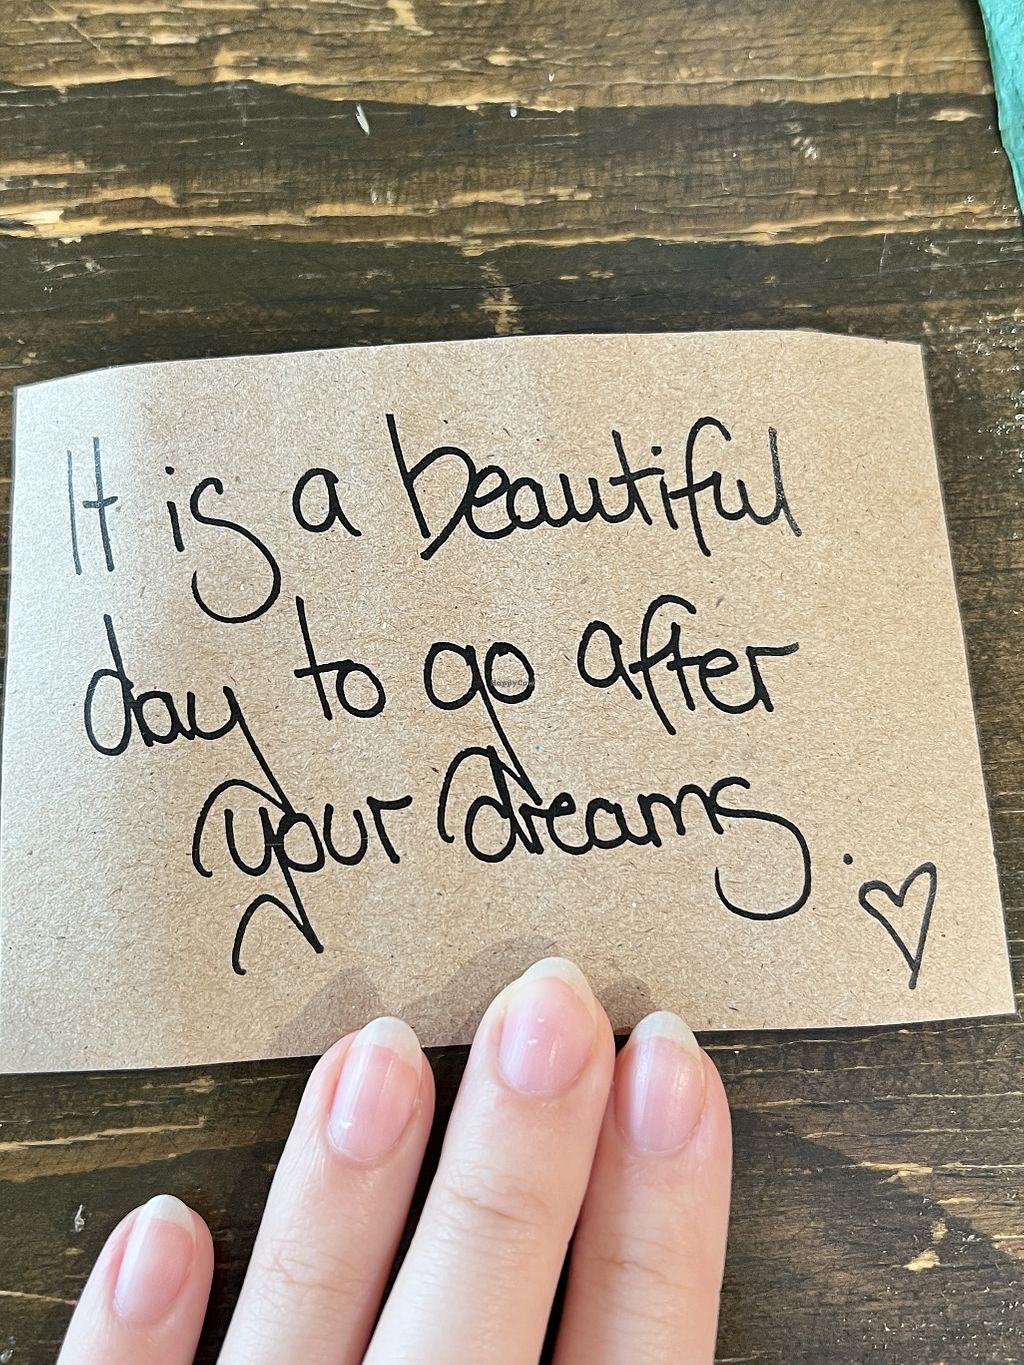 It is a beautiful
day to go after
your dreams.
HappyCow